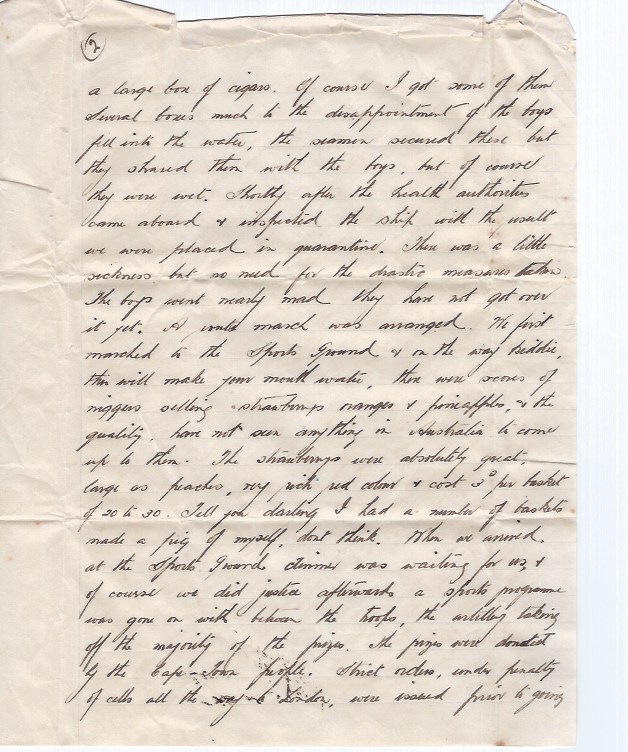 2
a large box of cigars. Of course I got some of them
Several boxes much to the disappointment of the boys
fell into the water, the seamen secured these but
they shared them with the boys, but of course
they were wet. Shortly after the health authorities
came aboard & inspected the ship with the result
we were placed in quarantine. There was a little
sickness but no need for the drastic measures taken
The boys went nearly mad they have not got over
it yet. A route march was arranged. We first
marched to the Sports Ground & on the way
this will make your mouth water, there were scores of
niggers selling strawberrys oranges & pineapples, & the
quality, have not seen anything in Australia to come
up to them. The strawberrys were absolutely great,
large as peaches, very rich red colour & cost 3D per basket
of 20 to 30. Tell you darling I had a number of baskets
made a pig of myself, dont think. When we arrived
at the Sports Ground dinner was waiting for us, &
of course we did justice afterwards a sports programe
was gone on with between the troops, the artillery taking
off the majority of the prizes. The prizes were donated
by the Cape-Town people. Strict orders, under penalty
of cells all the way to London, were issued prior to going